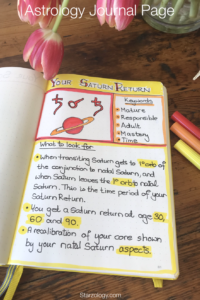 Astrology Journal Page
YOUR SATURN RETURN
♄ ☌ ♄
Keywords
• Mature
• Responsible
• Adult
• Mastery
• Time
What to look for:
• When transiting Saturn gets to 1° orb of
the conjunction to natal Saturn, and
when Saturn leaves the 1° orb to natal
Saturn. This is the time period of your
Saturn Return.
• You get a Saturn return at age 30,
60 and 90.
• A recalibration of your core shown
by your natal Saturn aspects.